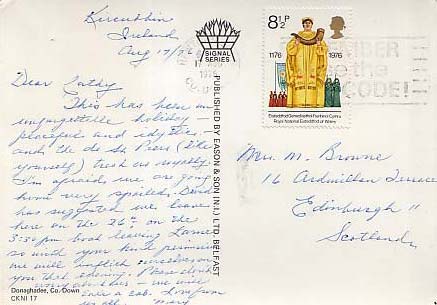 Kircubbin
Ireland
Aug 17/76
Dear Cathy
This has been an
unforgettable holiday –
peaceful and idyllic –
and the de St Pierre (like
yourself) treat us royally.
I'm afraid we are going
home very spoiled. David
has suggested we leave
here on the 26th on the
3:30 pm boat leaving Larne
so with your kind permission
we will inflict ourselves on
you that evening. Please don't
worry about us – we will
a cab. Love from
us all. Mary
Donaghadee, Co. Down
CKNI 17
SIGNAL
SERIES
PUBLISHED BY EASON & SON (N.I.) LTD. BELFAST
17 AUG
8½P
1176 1976
Eisteddfod Genedlaethol Frenhinol Cymru
Royal National Eisteddfod of Wales
the
CODE!
Mrs. M. Browne
16 Ardmillan Terrace
Edinburgh 11
Scotland